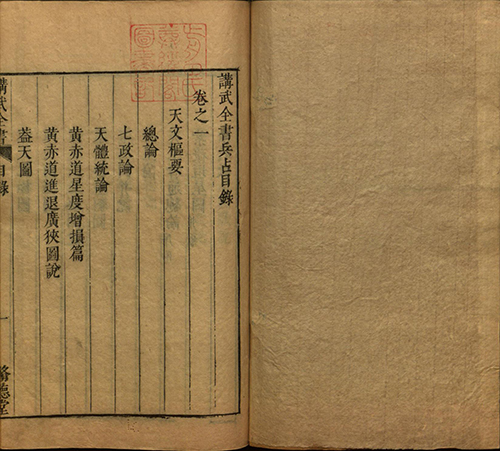 講武全書兵占目錄
卷之一
天文樞要
總論
七政論
天體統論
黃赤道星度增損篇
黃赤道進退廣狹圖說
蓋天圖
講武全書 目錄 一